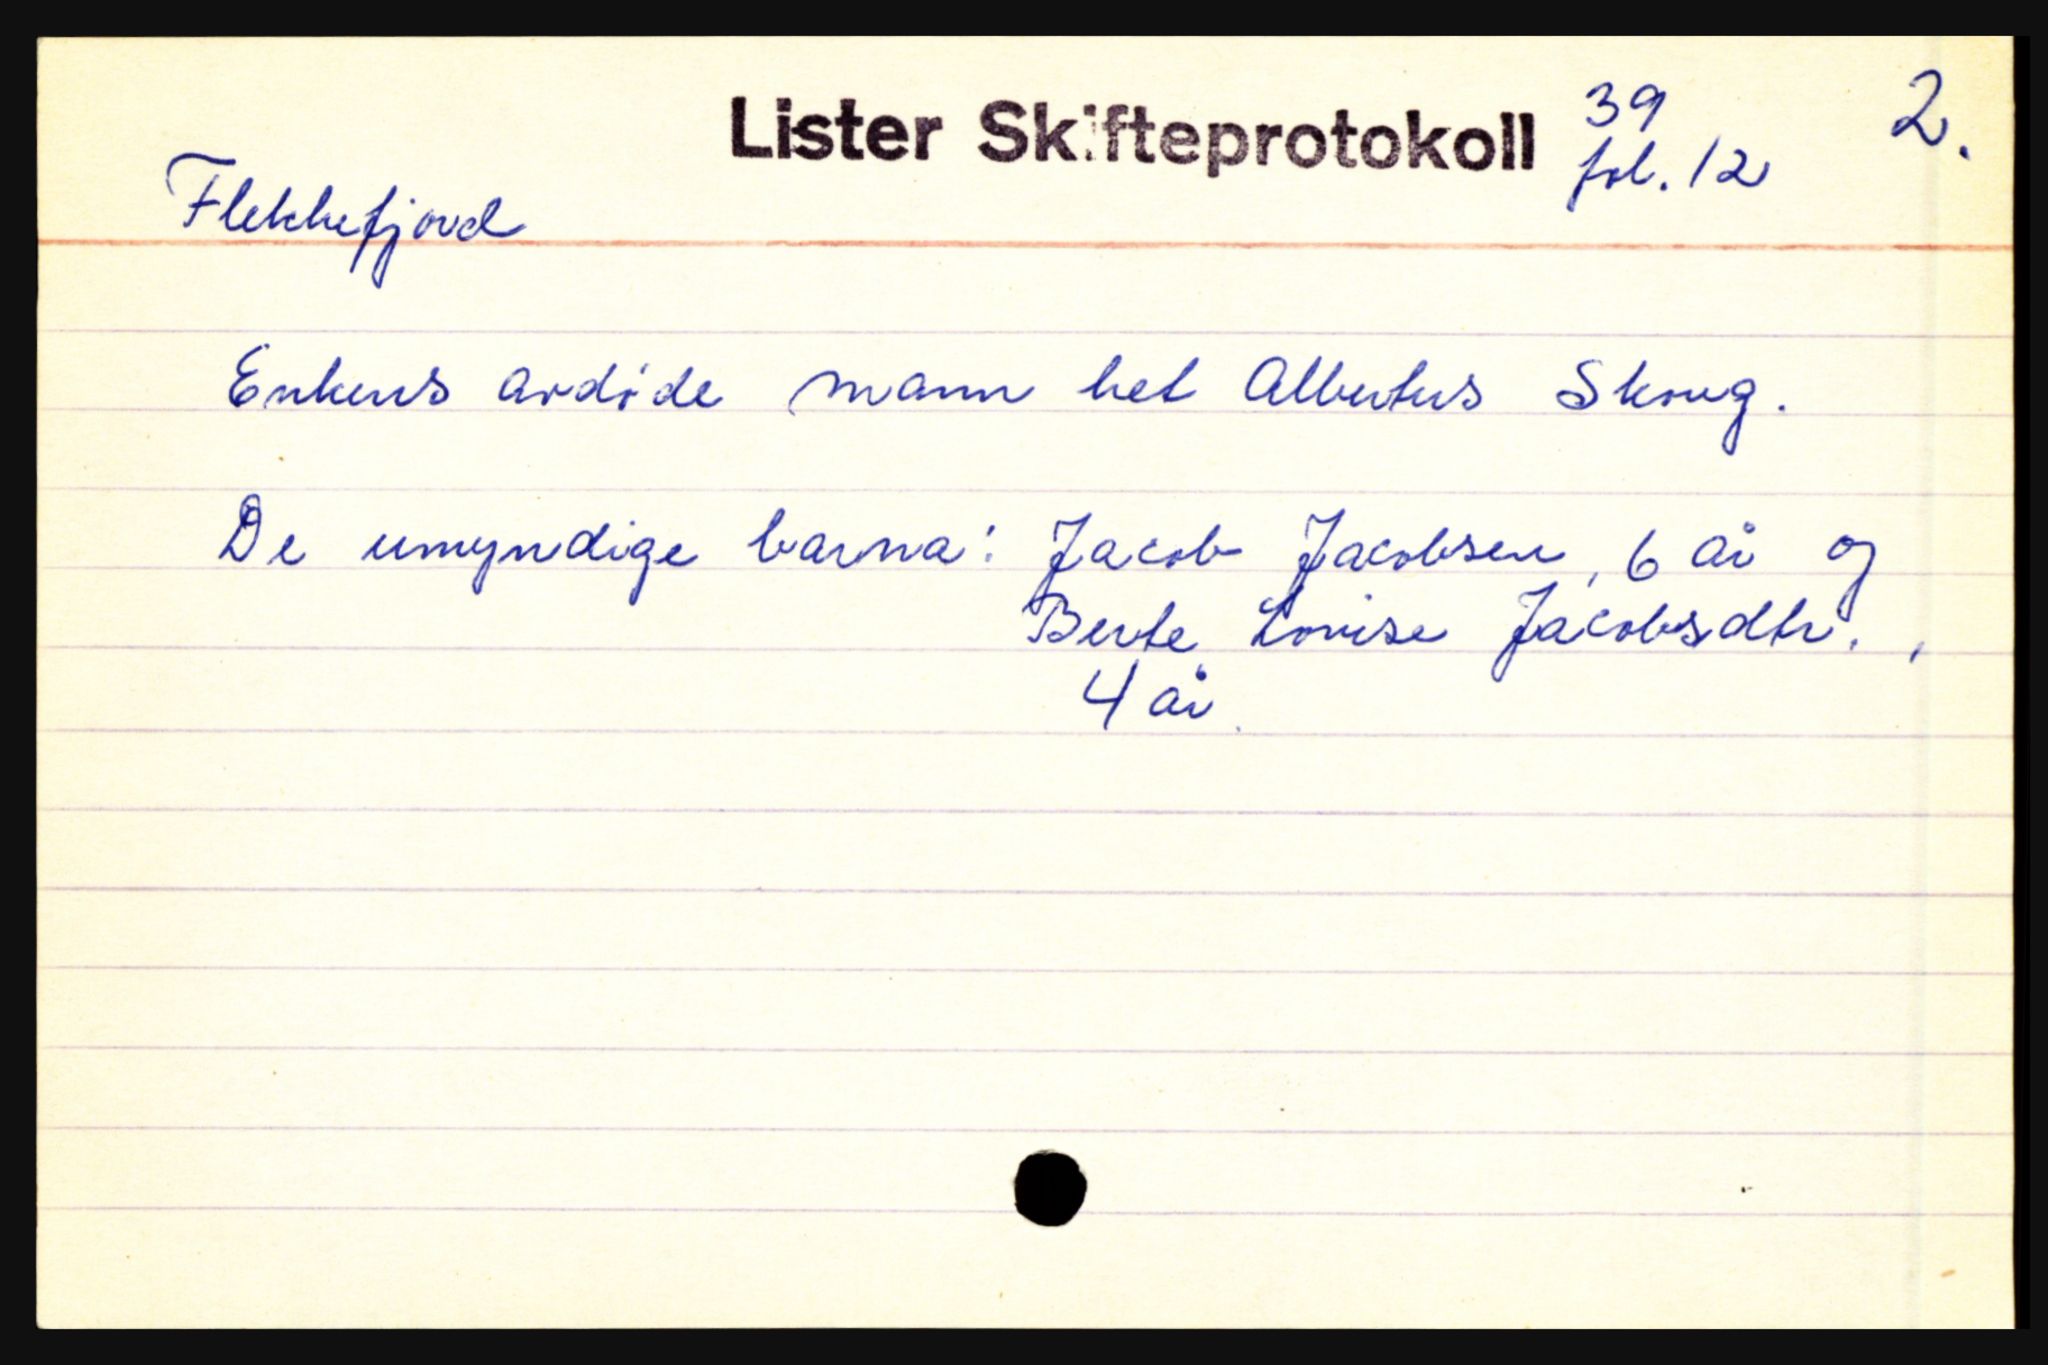 Lister Skifteprotokoll 39 2.
fol. 12
Flekkefjord
Enkens avdøde mann het Albertus Skoug.
De umyndige barna: Jacob Jacobsen, 6 år og
Berte Lovise Jacobsdtr.,
4 år.